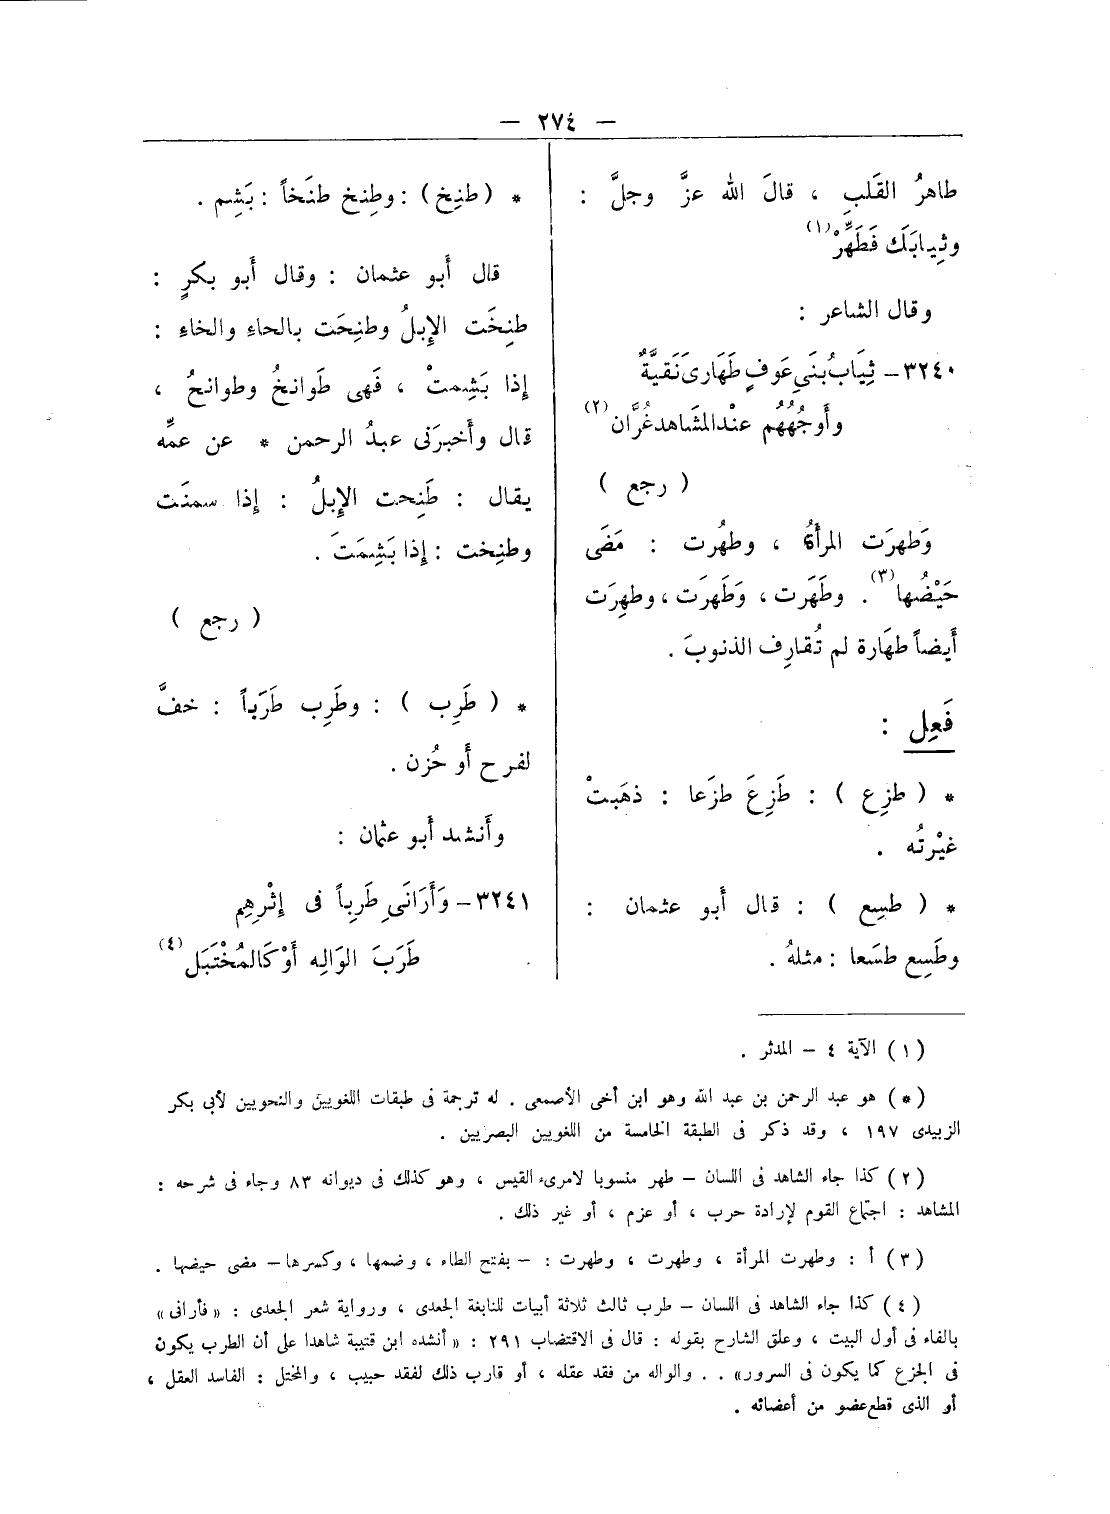 — ٢٧٤ —
طاهرُ القَلبِ ، قالَ الله عزَّ وجلَّ :
وثِيابَكَ فَطَهِّرْ(١)
وقال الشاعر :
٣٢٤٠ – ثِيَابُ بُنَى عَوفٍ طَهَارى نَقيَّةٌ
وأَوجُهُهُم عنْد المشَاهد غُرَّان(٢)
( رجع )
وَطهرَت المرأَةُ ، وطهُرت : مَضَى
حَيْضُها(٣) . وطَهَرَت ، وَطَهرَت ، وطهِرَت
أَيضاً طهَارة لم تُقارِف الذنوبَ .
فَعِل :
* ( طزِع ) : طَزِعَ طزَعا : ذهَبتْ
غيْرتُه .
* ( طسِع ) : قال أَبو عثمان :
وطَسِع طسَعا : مثلهُ .
* ( طنِخ ) : وطنِخ طنَخاً : بَشِم .
قال أَبو عثمان : وقال أَبو بكرٍ :
طنِخَت الإبلُ وطنِحَت بالحاءِ والخاءِ :
إذا بَشِمتْ ، فَهى طَوانخُ وطوانحُ ،
قال وأَخبرَنى عبدُ الرحمن * عن عمِّه
يقال : طَنِحت الإبلُ : إذا سمنَت
وطنِخت : إذا بَشِمَتَ .
( رجع )
* ( طَرِب ) : وطَرِب طَرَباً : خفَّ
لفرح أَو حُزن .
وأَنشد أَبو عثمان :
٣٢٤١ – وَأَرَانَىِ طَرِباً فى إثْرِهِم
طَرَبَ الوَالِه أَوْ كَالمُخْتَبَل(٤)
(١) الآية ٤ – المدثر .
(*) هو عبد الرحمن بن عبد الله وهو ابن أخى الأصمعى . له ترجمة فى طبقات اللغويين والنحويين لأبى بكر
الزبيدى ١٩٧ ، وقد ذكر فى الطبقة الخامسة من اللغويين البصريين .
(٢) كذا جاء الشاهد فى اللسان – طهر منسوبا لامرىء القيس ، وهو كذلك فى ديوانه ٨٣ وجاء فى شرحه :
المشاهد : اجتماع القوم لإرادة حرب ، أو عزم ، أو غير ذلك .
(٣) أ : وطهرت المرأة ، وطهرت ، وطهرت : – بفتح الطاء ، وضمها ، وكسرها – مضى حيضها .
(٤) كذا جاء الشاهد فى اللسان – طرب ثالث ثلاثة أبيات للنابغة الجعدى ، ورواية شعر الجعدى : « فأرانى »
بالفاء فى أول البيت ، وعلق الشارح بقوله : قال فى الاقتضاب ٢٩١ : « أنشده ابن قتيبة شاهدا على أن الطرب يكون
فى الجزع كما يكون فى السرور» . . والواله من فقد عقله ، أو قارب ذلك لفقد حبيب ، والمختل : الفاسد العقل ،
أو الذى قطع عضو من أعضائه .